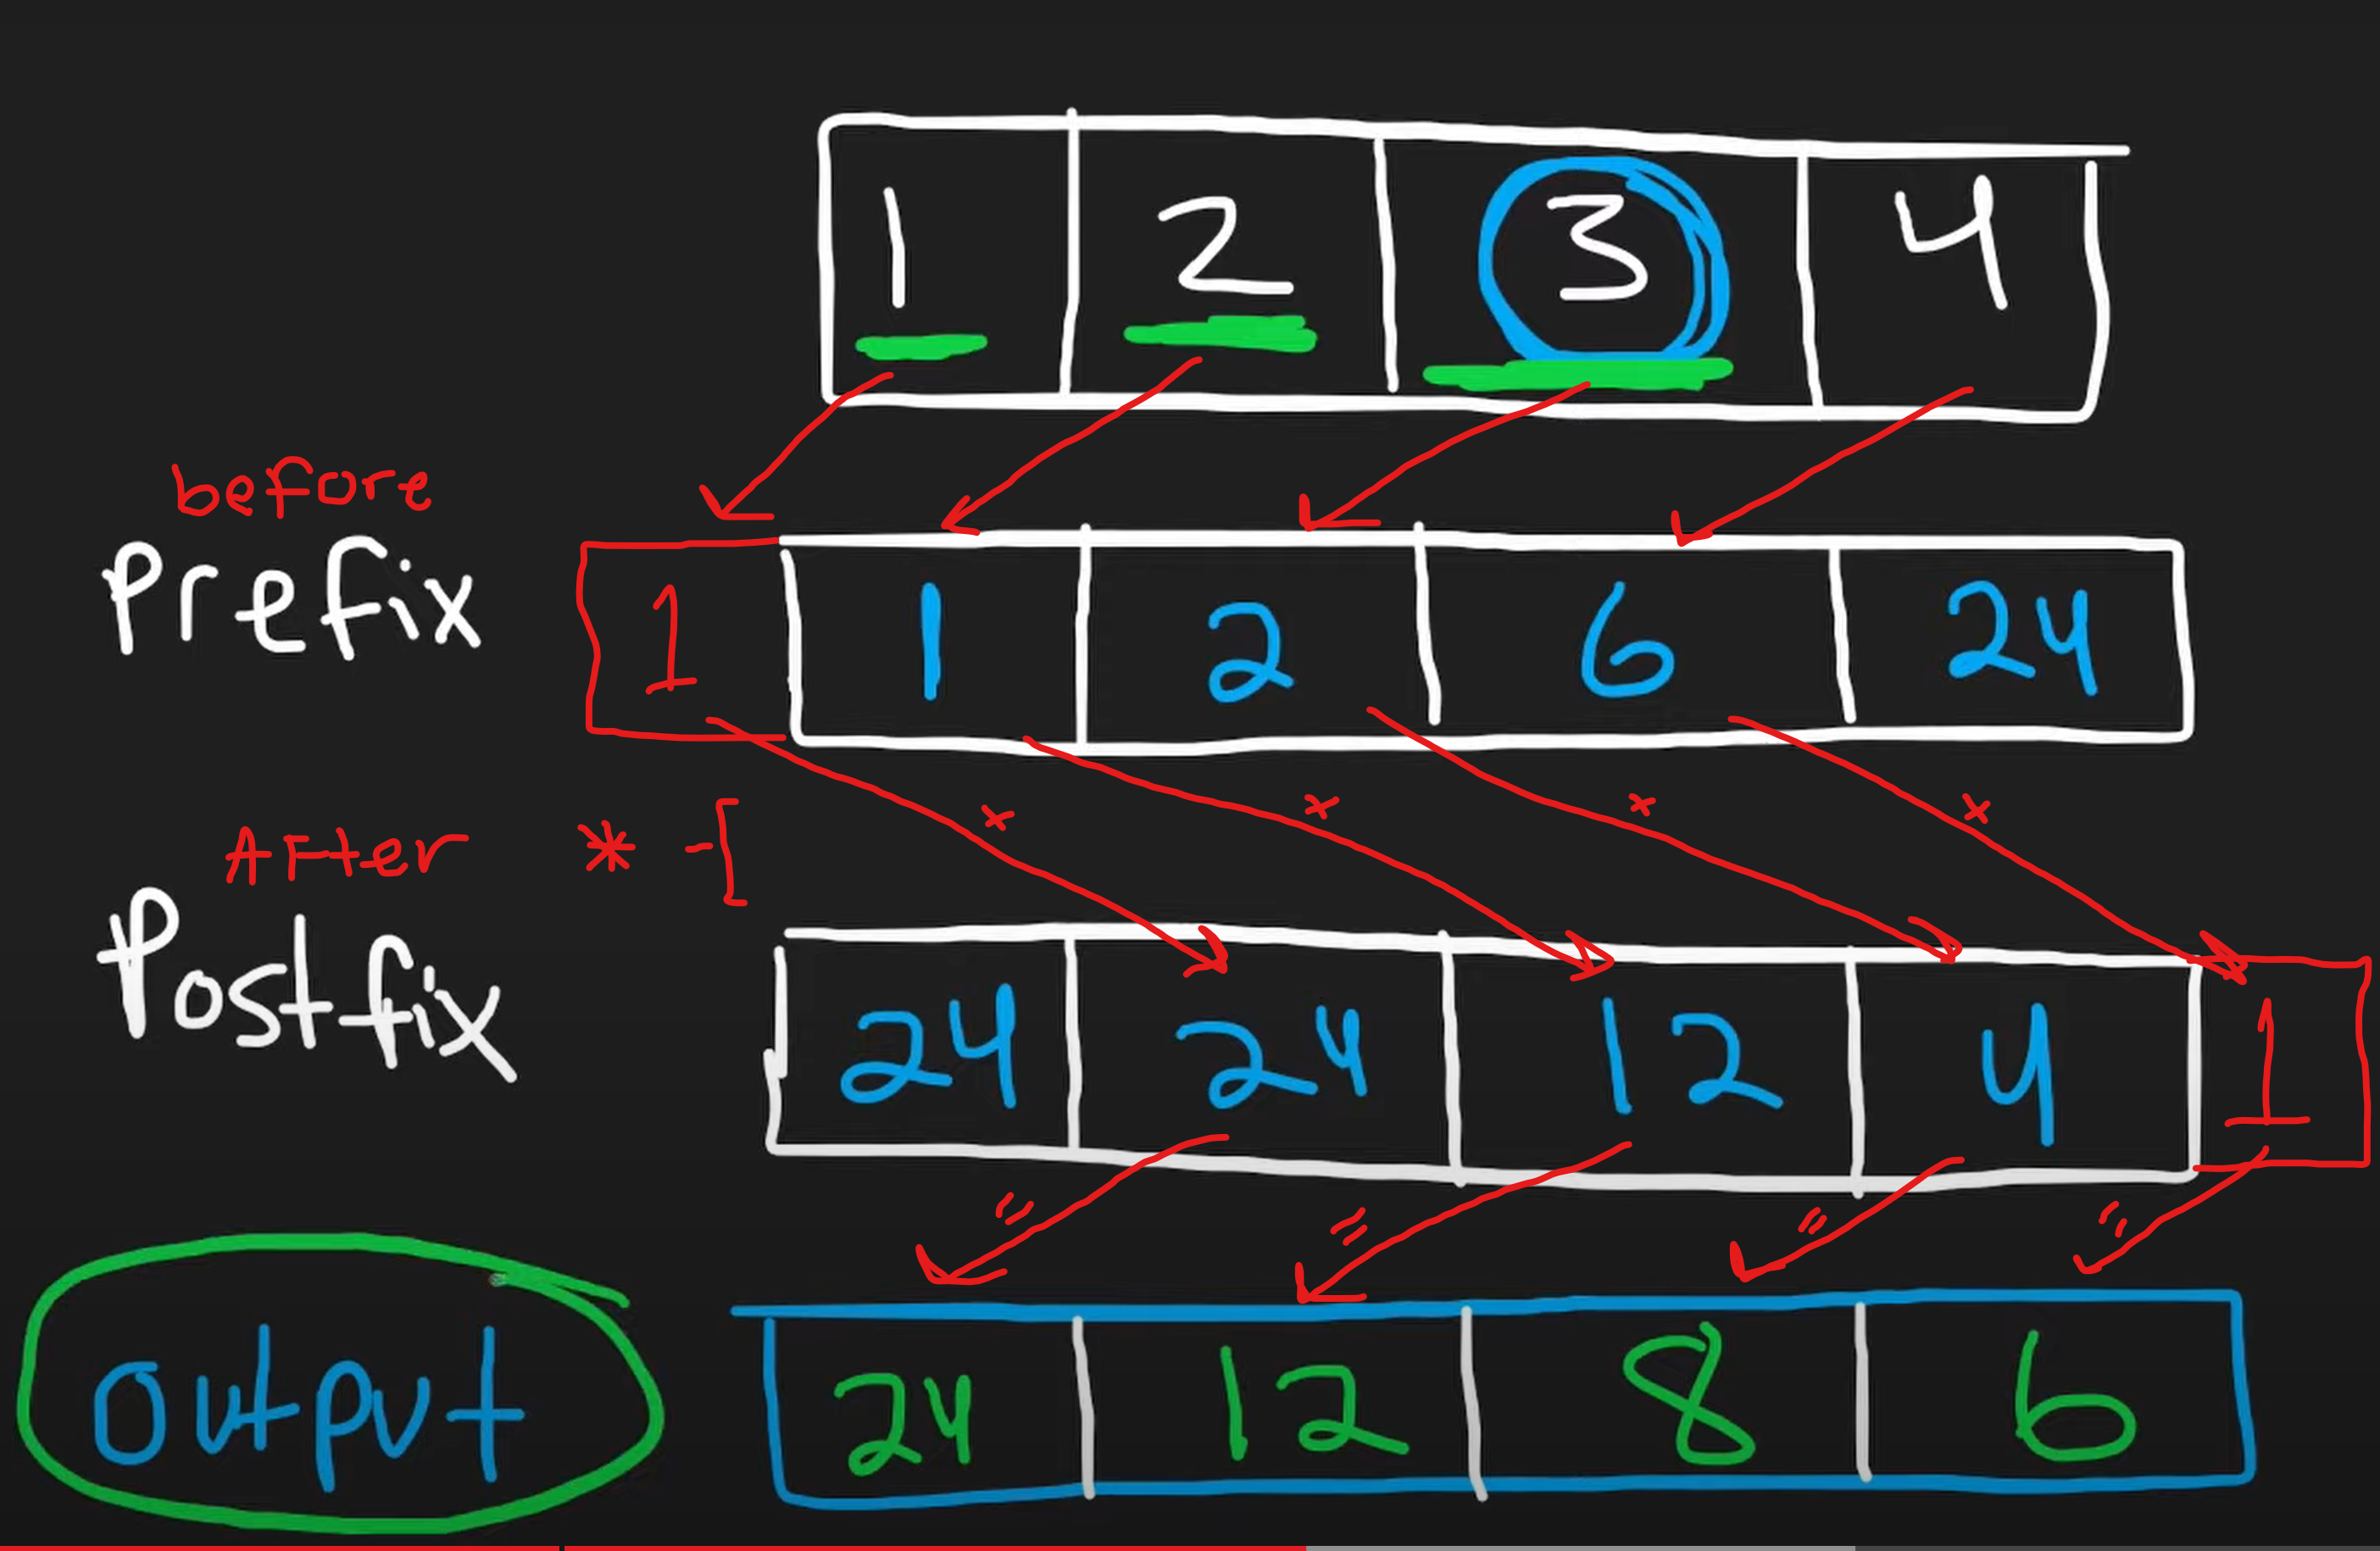 1 2 3 4
before
Prefix 1 1 2 6 24
* * * *
After * {
Postfix 24 24 12 4 1
= = = =
output 24 12 8 6